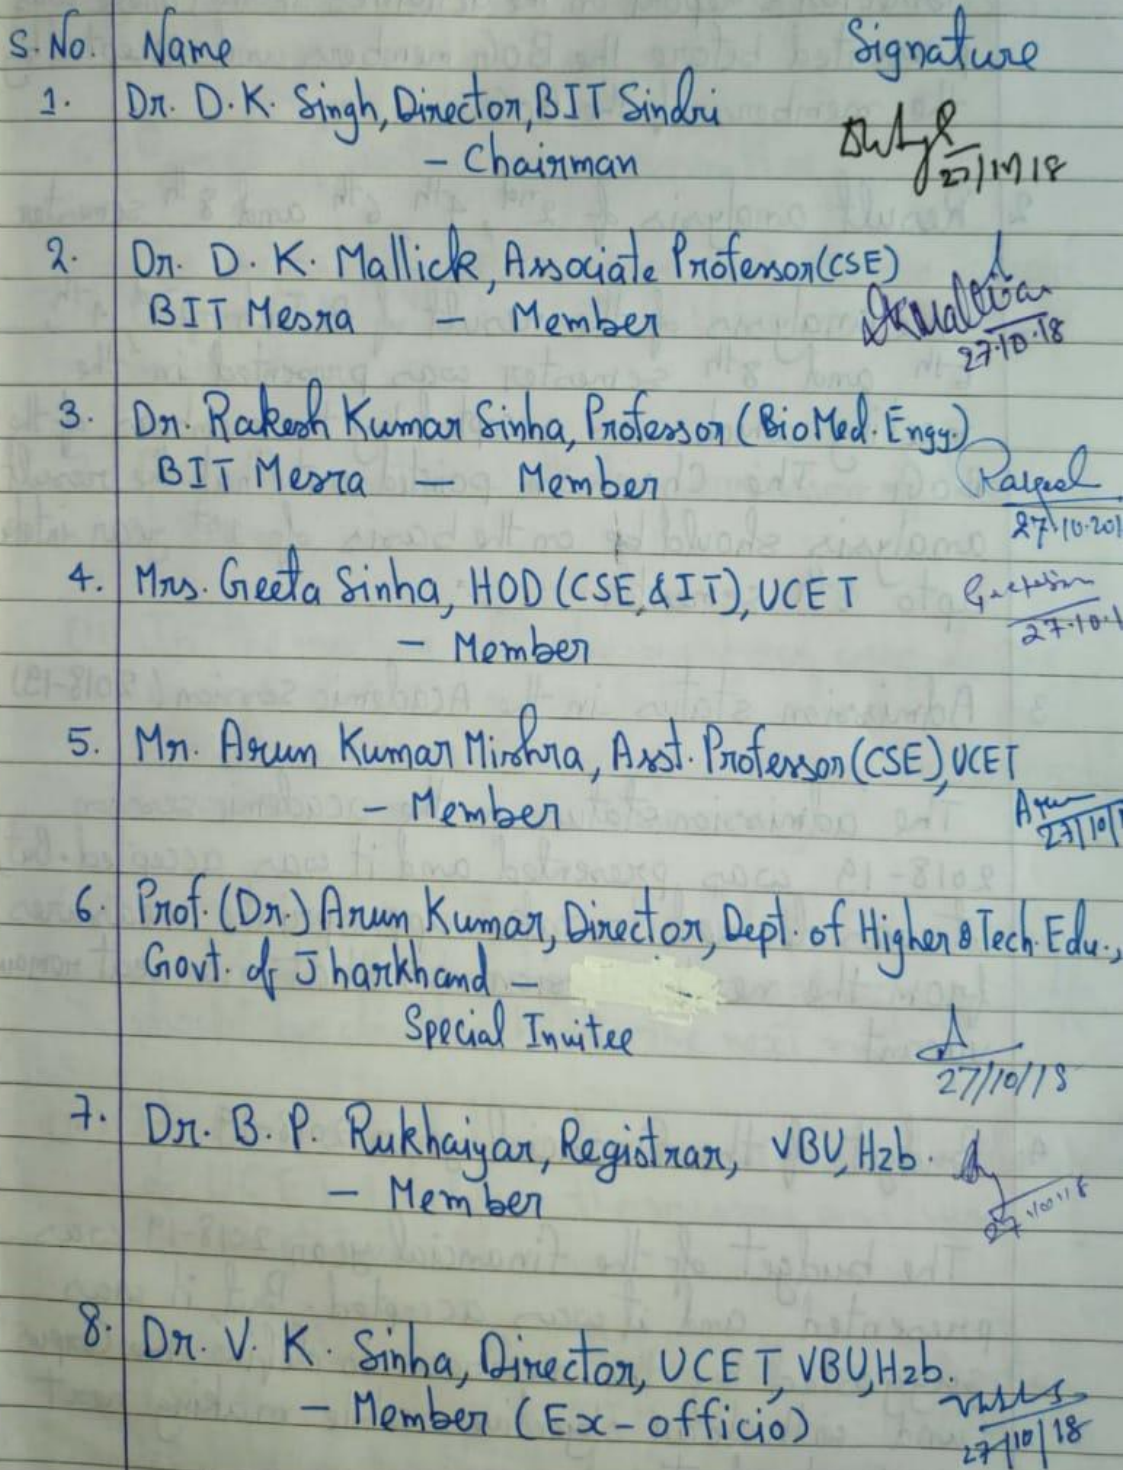 S. No. Name Signature
1. Dr. D. K. Singh, Director, BIT Sindri
- Chairman
27/10/18
2. Dr. D. K. Mallick, Associate Professor (CSE)
BIT Mesra - Member
27.10.18
3. Dr. Rakesh Kumar Sinha, Professor (BioMed. Engg.)
BIT Mesra - Member
27.10.201
4. Mrs. Geeta Sinha, HOD (CSE & IT), UCET
- Member
27.10.1
5. Mr. Arun Kumar Mishra, Asst. Professor (CSE), UCET
- Member
Arun
27/10/1
6. Prof. (Dr.) Arun Kumar, Director, Dept. of Higher & Tech. Edu.,
Govt. of Jharkhand -
Special Invitee
27/10/18
7. Dr. B. P. Rukhaiyar, Registrar, VBU, Hzb.
- Member
8. Dr. V. K. Sinha, Director, UCET, VBU, Hzb.
- Member (Ex-officio)
27/10/18